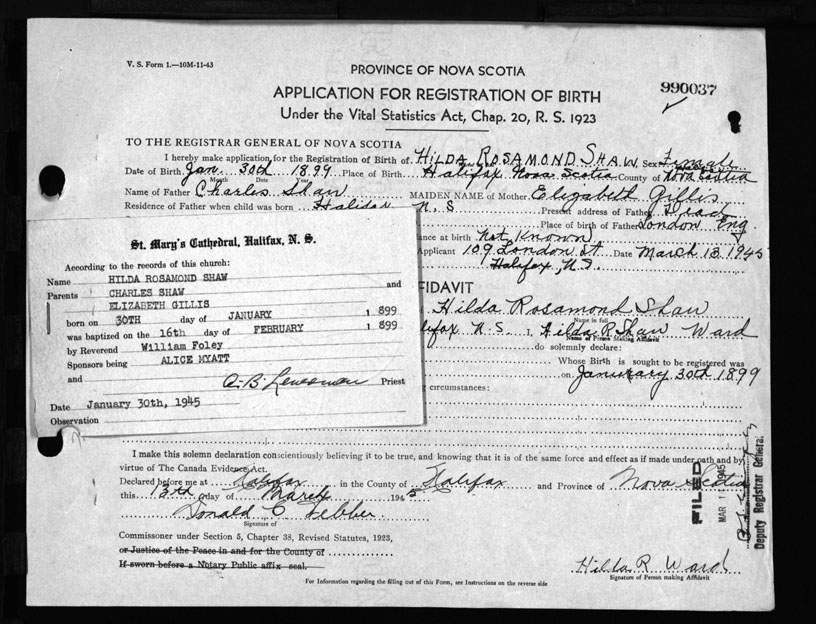 V. S. Form 1.—10M-11-43
PROVINCE OF NOVA SCOTIA
APPLICATION FOR REGISTRATION OF BIRTH
Under the Vital Statistics Act, Chap. 20, R. S. 1923
990037
TO THE REGISTRAR GENERAL OF NOVA SCOTIA
I hereby make application for the Registration of Birth of HILDA ROSAMOND SHAW Sex Female
Date of Birth Jan. 30th 1899 Place of Birth Halifax Nova Scotia County of Nova Scotia
Month Date Year
Name of Father Charles Shaw MAIDEN NAME of Mother Elizabeth Gillis
Residence of Father when child was born Halifax N. S Present address of Father Dead
Place of birth of Father London Eng
ance at birth Not Known
pplicant 109 London St. Date March 13 1945
Halifax, N.S.
St. Mary's Cathedral, Halifax, N. S.
According to the records of this church:
Name HILDA ROSAMOND SHAW and
Parents CHARLES SHAW
ELIZABETH GILLIS
born on 30TH day of JANUARY 1899
was baptized on the 16th day of FEBRUARY 1899
by Reverend William Foley
Sponsors being ALICE MYATT
and Priest
Date January 30th, 1945
Observation
FIDAVIT
Hilda Rosamond Shaw
Name in full
lifax N.S. I, Hilda R. Shaw Ward
Name of Person Making Affidavit
do solemnly declare:
Whose Birth is sought to be registered was
on January 30th 1899
circumstances:
I make this solemn declaration conscientiously believing it to be true, and knowing that it is of the same force and effect as if made under oath and by
virtue of The Canada Evidence Act.
Declared before me at Halifax in the County of Halifax and Province of Nova Scotia
this 13th day of March 1945
Donald C Webber
Signature of
Commissoner under Section 5, Chapter 38, Revised Statutes, 1923,
or Justice of the Peace in and for the County of
If sworn before a Notary Public affix seal.
FILED
MAR 1 1945
Deputy Registrar General
Hilda R. Ward
Signature of Person making Affidavit
For Information regarding the filling out of this Form, see Instructions on the reverse side